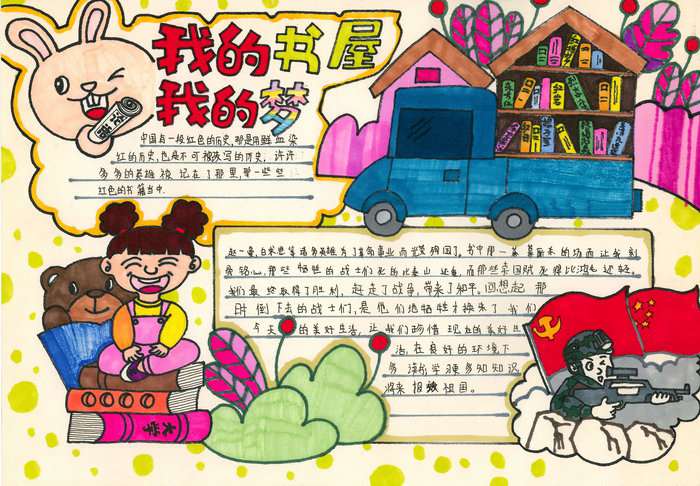 我的书屋
我的梦
中国有一段红色的历史,那是用鲜血染
红的历史,也是不可被改写的历史,许许
多多的英雄被记在了那里,那一些些
红色的书籍当中.
赵一曼,白求恩等诸多英雄为了革命事业而光荣殉国了。书中那一幕幕的场面让我刻
骨铭心,那些牺牲的战士们死的比泰山还重,而那些卖国贼死得比鸿毛还轻。
我们最终取得了胜利,赶走了战争,带来了和平,回想起那
一个个倒下去的战士们,是他们的牺牲才换来了我们
今天的美好生活,让我们珍惜现在的美好生
活,在良好的环境下
多读书学习更多知识
将来报效祖国。
大学